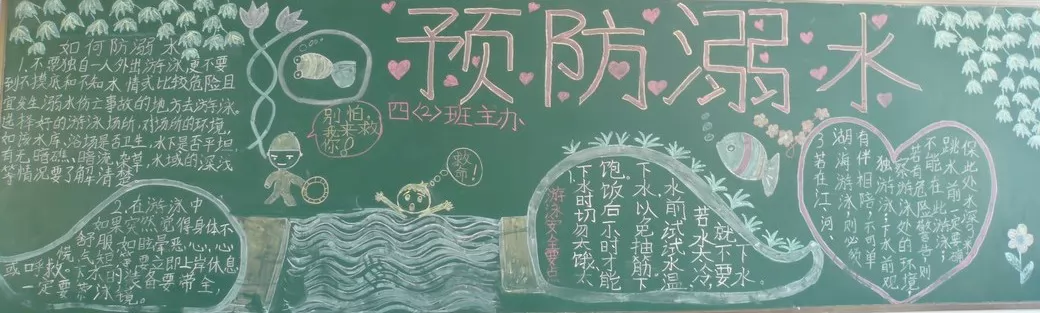 预防溺水
四<2>班主办
如何防溺水
1、不要独自一人外出游泳,更不要
到不摸底和不知水情或比较危险且
宜发生溺水伤亡事故的地方去游泳。
选择好的游泳场所,对场所的环境,
如该水库、浴场是否卫生,水下是否平坦,
有无暗礁、暗流、杂草,水域的深浅
等情况要了解清楚。
2、在游泳中
如果突然觉得身体不
舒服,如眩晕、恶心、心
慌、气短,要立即上岸休息
或呼救。下水的装备要带全,
一定要带泳镜。
别怕,
我来救
你!
救命!
游泳安全要点
1、下水时切勿太饿、太
饱。饭后一小时才能
下水,以免抽筋;下
水前试试水温,
若水太冷,
就不要
下水。
3、若在江、河、
湖、海游泳,则必须
有伴相陪,不可单
独游泳;下水前观
察游泳处的环境,
若有危险警告,则
不能在此游泳;
跳水前一定要确
保此处水深